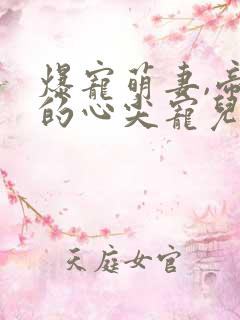 爆寵萌妻,帝
的心尖寵兒
天庭女官